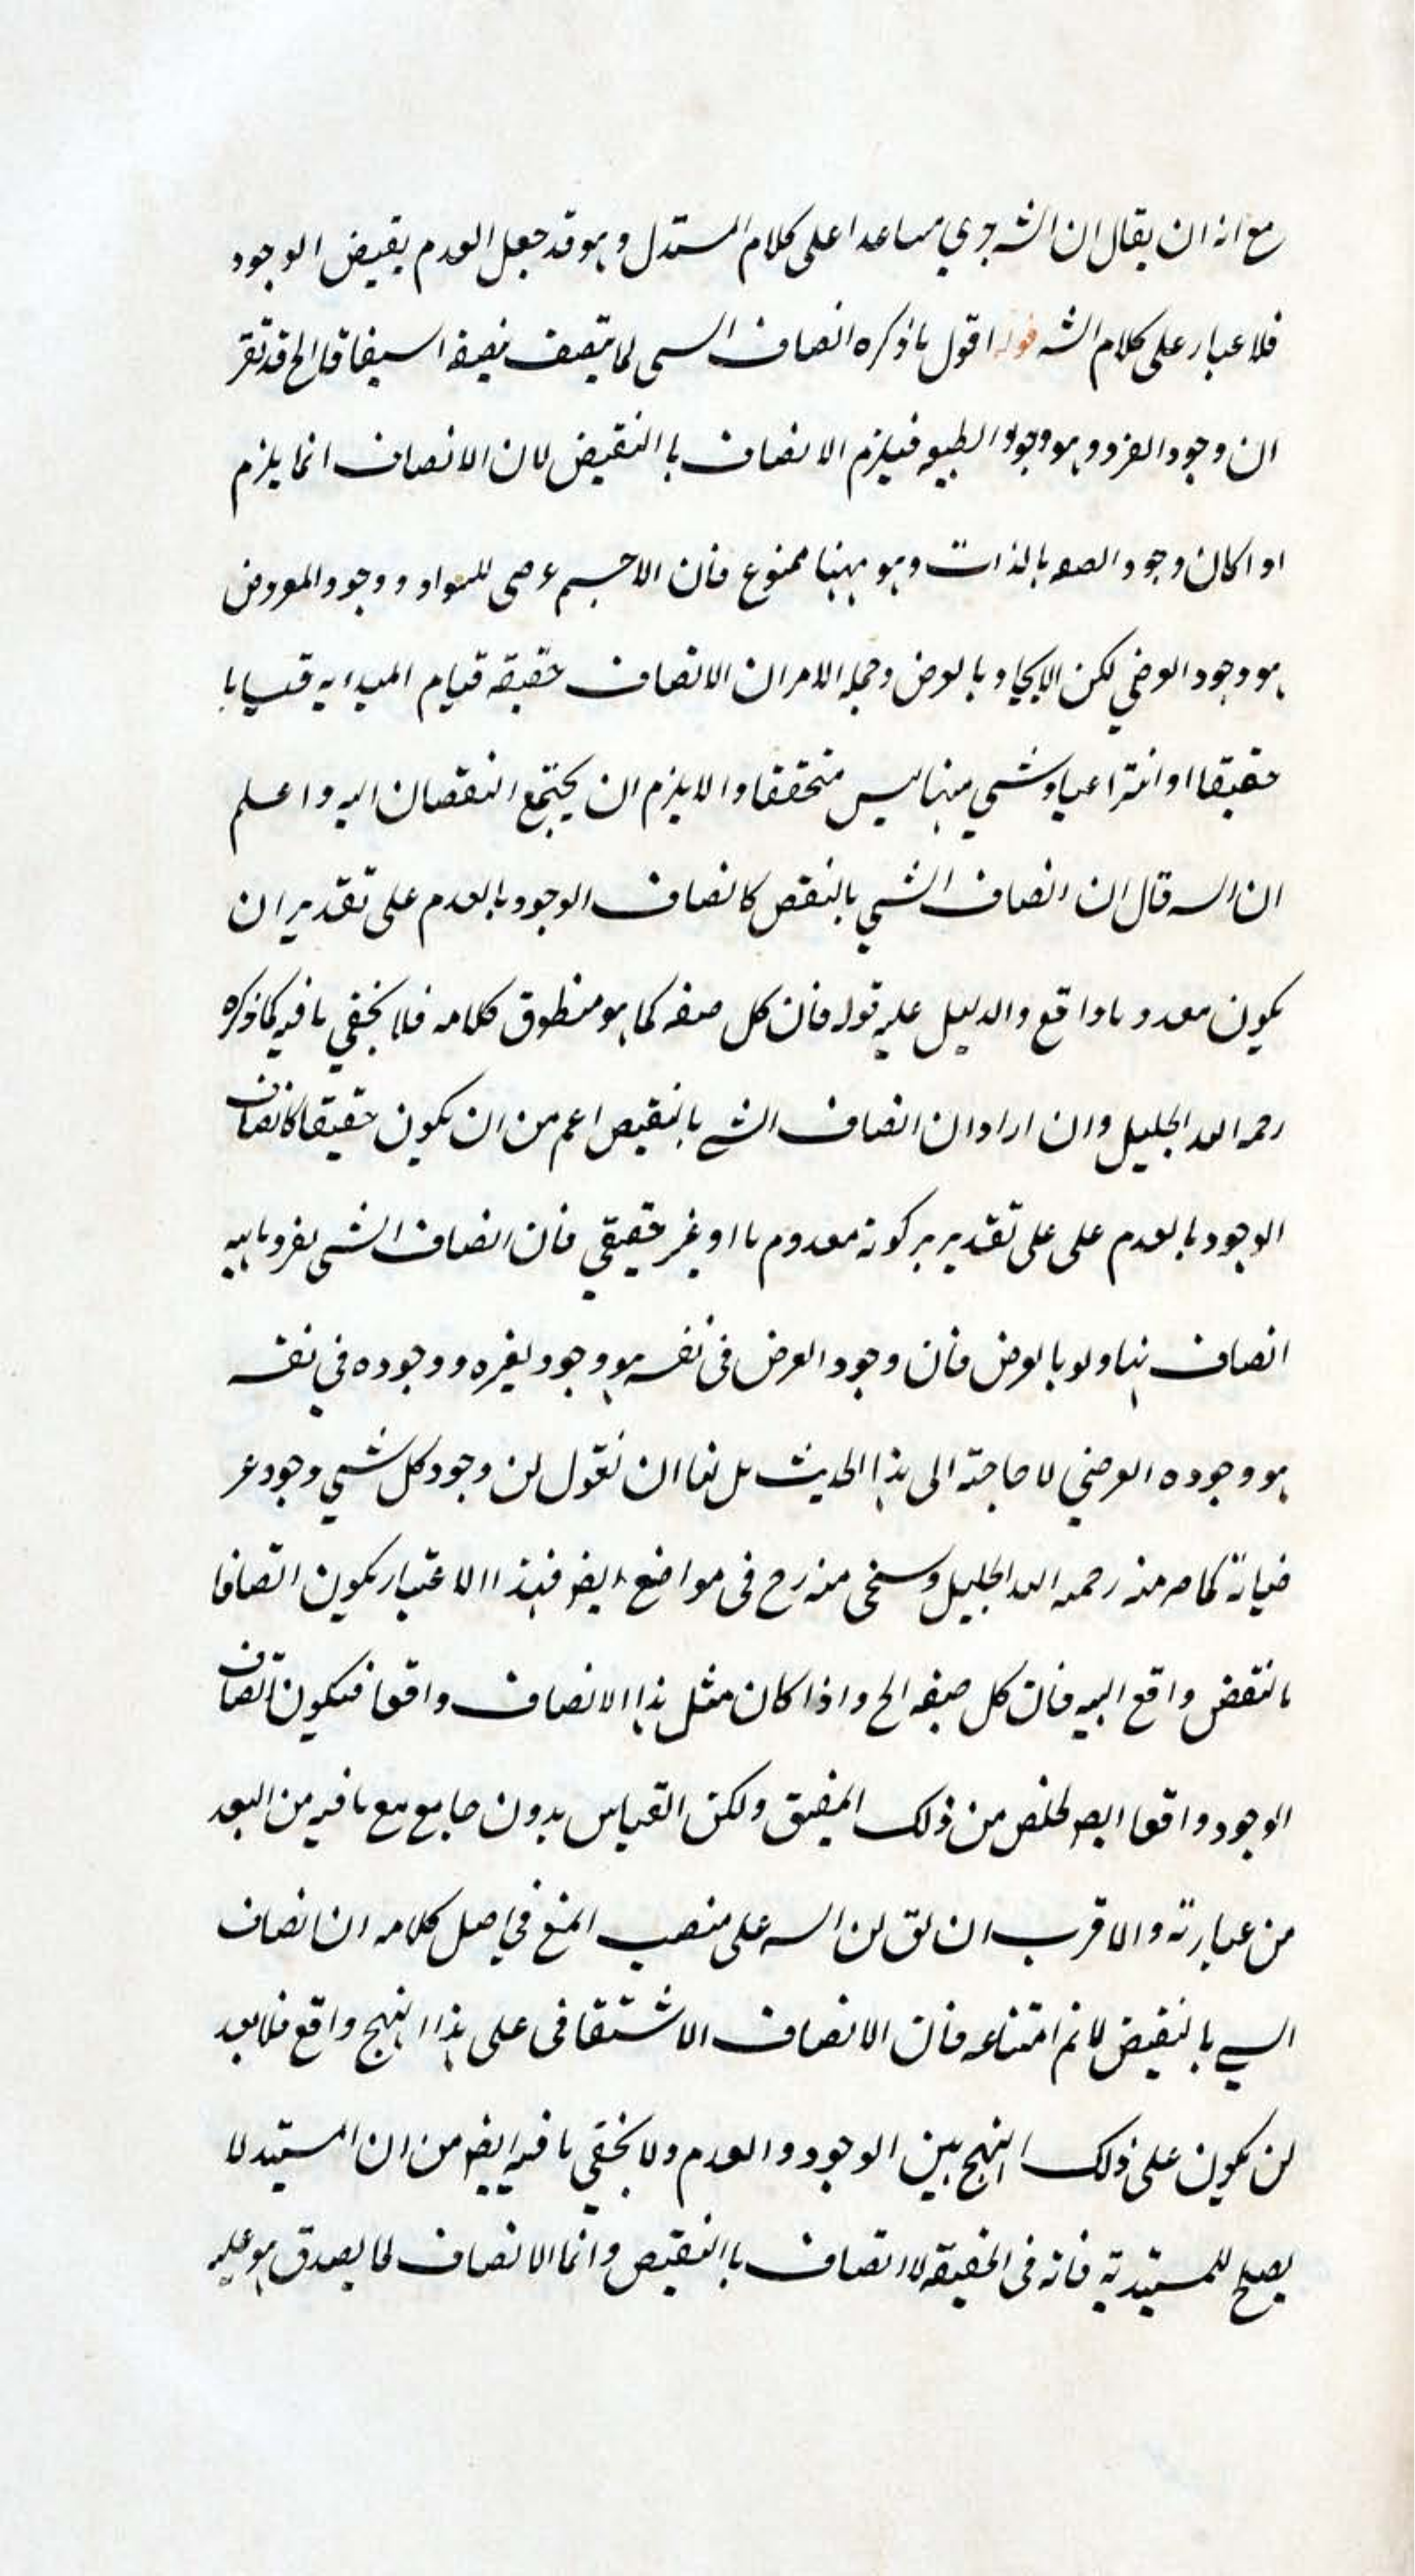 مع انه ان يقال ان الشه جري مساعدا على كلام المستدل وهو قد جعل العدم نقيض الوجود
فلا غبار على كلام الشه قوله اقول ما ذكره اتصاف الشى لما يتصف الخ قد تقرر
ان وجود الفرد وهو وجود الطبيعه فيلزم الاتصاف باالنقيض لان الاتصاف انما يلزم
اذا كان وجود بالذات وهو ههنا ممنوع فان الاجسم عرضى للسواد ووجود المعروض
هو وجود العرضي لكن الايجاد بالعرض وجمله الامر ان الاتصاف حقيقه قيام المبداء به قياما
حقيقا او انتزاعيا وشىء منها ليس متحققا والا يلزم ان يجتمع النقصان اليه واعلم
ان السه قال ان اتصاف الشيء بالنقض كاتصاف الوجود بالعدم على تقدير ان
يكون معدوما واقع والدليل عليه قوله فان كل صفه كما هو منطوق كلامه فلا يخفي ما فيه كما ذكره
رحمه الله الجليل وان اراد ان اتصاف الشے بالنقيض اعم من ان يكون حقيقا كاتصاف
الوجود بالعدم على على تقدير كونه معدوم ما او غير حقيقي فان اتصاف الشى بفرد ماهيه
اتصاف بها ولو بالعرض فان وجود العرض فى نفسه هو وجود لغيره ووجوده فى نفسه
هو وجوده العرضي لا حاجة الى هذا الحديث بل لنا ان نقول لن وجود كل شيء وجود عر
ضياته كما مر منه رحمه الله الجليل وسيجى منه رح فى مواضع ايضا فبهذا الاعتبار يكون اتصافا
بالنقض واقع اليه فان كل صفه الخ واذا كان مثل هذا الاتصاف واقعا فيكون اتصاف
الوجود واقعا ايضا لخلص من ذلك المضيق ولكن القياس بدون جامع مع ما فيه من البعد
من عبارته والاقرب ان لق لن السه على منصب المنع في اصل كلامه ان اتصاف
السي بالنقيض لانم امتناعه فان الاتصاف الاشتقاقى على هذا النهج واقع فلا بعد
لن يكون على ذلك النهج بين الوجود والعدم ولا يخفي ما فيه ايضا من ان المستند لا
يصلح للمستندية فانه فى الحقيقه لا اتصاف باالنقيض وانما الاتصاف لما يصدق هو عليه